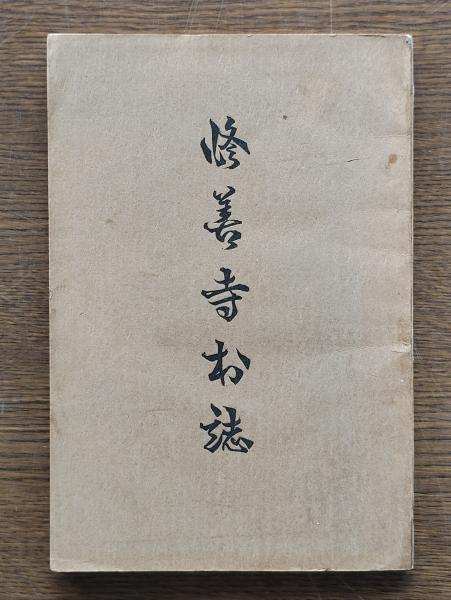 修善寺村誌